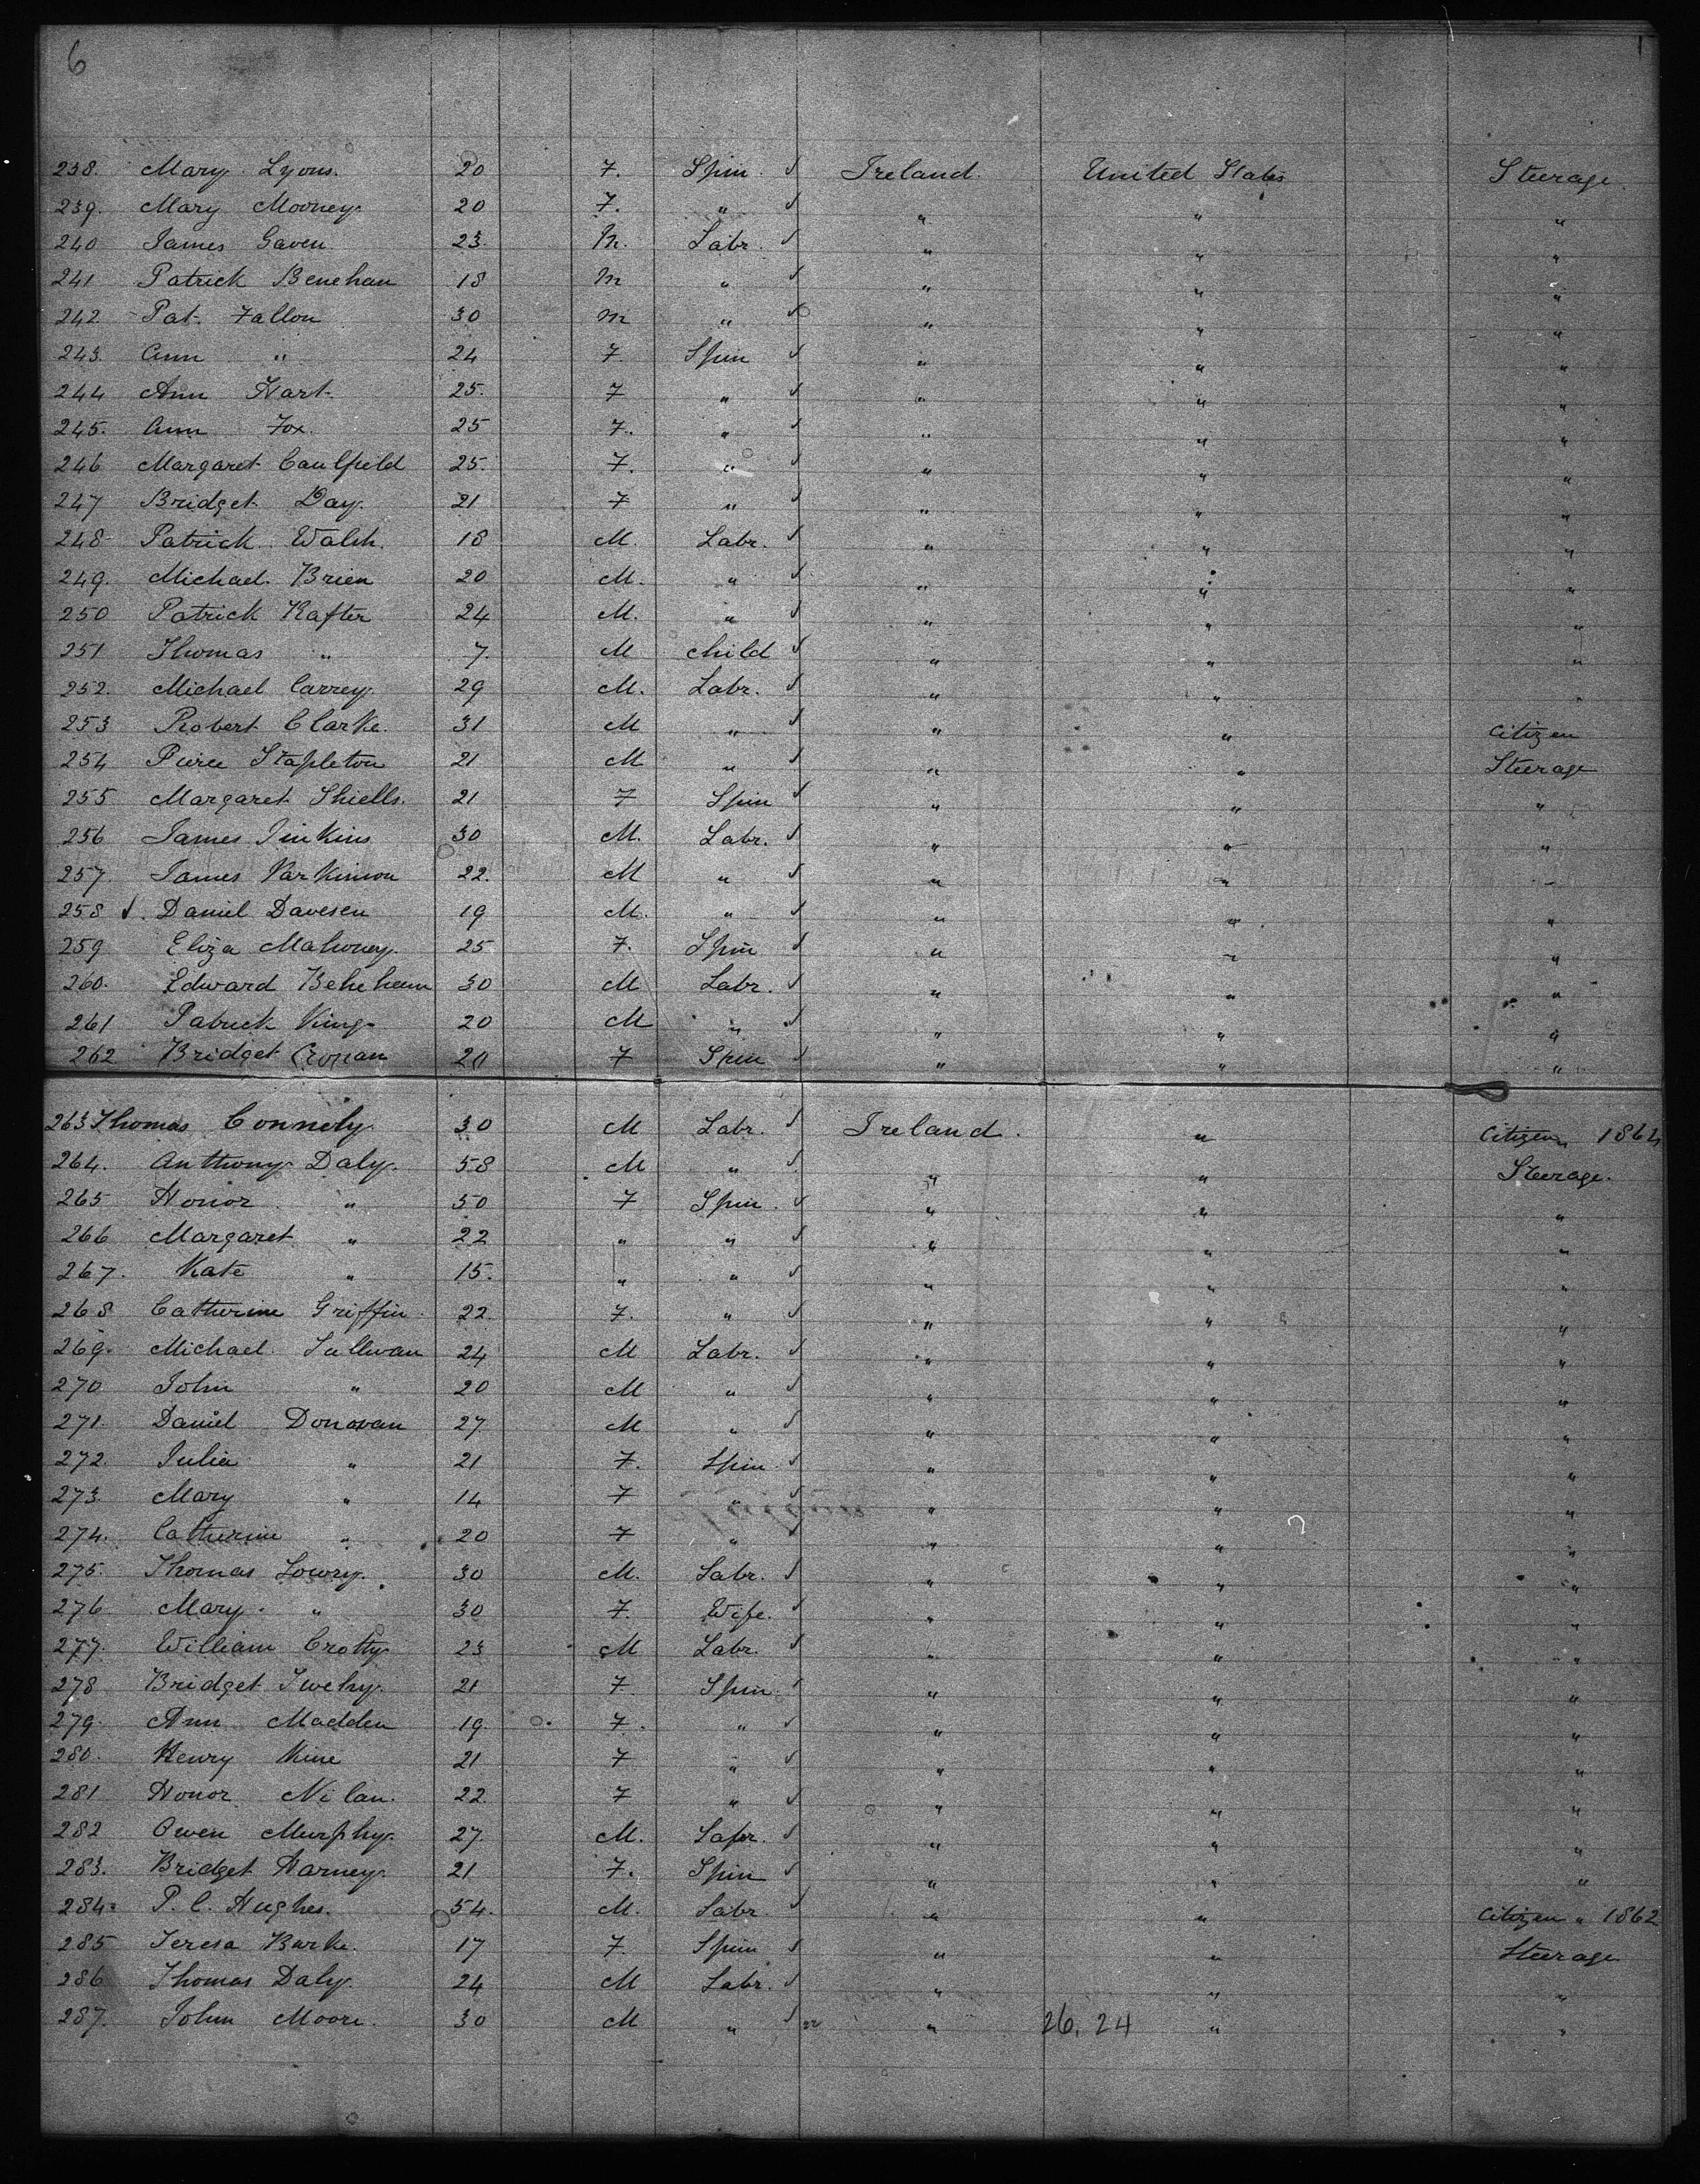 6
238. Mary Lyons. 20 F. Spin. Ireland. United States Steerage.
239. Mary Mooney. 20 F. " " " "
240 James Gaven 23. M. Labr. " " "
241 Patrick Benehan 18 M " " " "
242. Pat. Fallon 30 M " " " "
243. Ann " 24 F. Spin " " "
244 Ann Hart. 25. F " " " "
245. Ann Fox. 25 F. " " " "
246 Margaret Caulfield 25. F. " " " "
247 Bridget Day. 21 F " " " "
248 Patrick Walsh. 18 M. Labr. " " "
249. Michael Brien 20 M. " " " "
250 Patrick Rafter 24 M. " " " "
251 Thomas " 7. M child " " "
252. Michael Carrey. 29 M. Labr. " " "
253 Robert Clarke. 31 M " " " Citizen
254 Pierce Stapleton 21 M " " " Steerage
255 Margaret Shiells. 21 F Spin " " "
256 James Jinkins 30 M. Labr. " " "
257. James Parkinson 22. M " " " "
258 Daniel Davesen 19 M. " " " "
259 Eliza Mahoney. 25 F. Spin " " "
260. Edward Beheham 30 M Labr. " " "
261 Patrick King. 20 M " " " "
262 Bridget Cronan 20 F Spin " " "
263 Thomas Connely. 30 M Labr. Ireland. " Citizen 1864
264. Anthony Daly. 58 M " " " Steerage.
265 Honor " 50 F Spin. " " "
266 Margaret " 22 " " " " "
267. Kate " 15. " " " " "
268 Catherine Griffin. 22. F. " " " "
269. Michael Sullivan 24 M Labr. " " "
270 John " 20 M " " " "
271. Daniel Donovan 27 M " " " "
272. Julia " 21 F. Spin. " " "
273. Mary " 14 F " " " "
274. Catherine " 20 F " " " "
275. Thomas Lowry. 30 M. Labr. " " "
276 Mary. " 30 F. Wife. " " "
277. William Crotty 23 M Labr. " " "
278 Bridget Twehy. 21 F Spin. " " "
279. Ann Madden 19. F. " " " "
280. Henry Kine 21 F " " " "
281 Honor Nilan. 22. F " " " "
282 Owen Murphy. 27. M. Labr. " " "
283. Bridget Harney. 21 F. Spin " " "
284. P. C. Hughes. 54. M. Labr. " " Citizen " 1862
285 Teresa Burke. 17 F. Spin " " Steerage
286 Thomas Daly. 24 M Labr. " " "
287. John Moore. 30 M " " 26. 24 " "